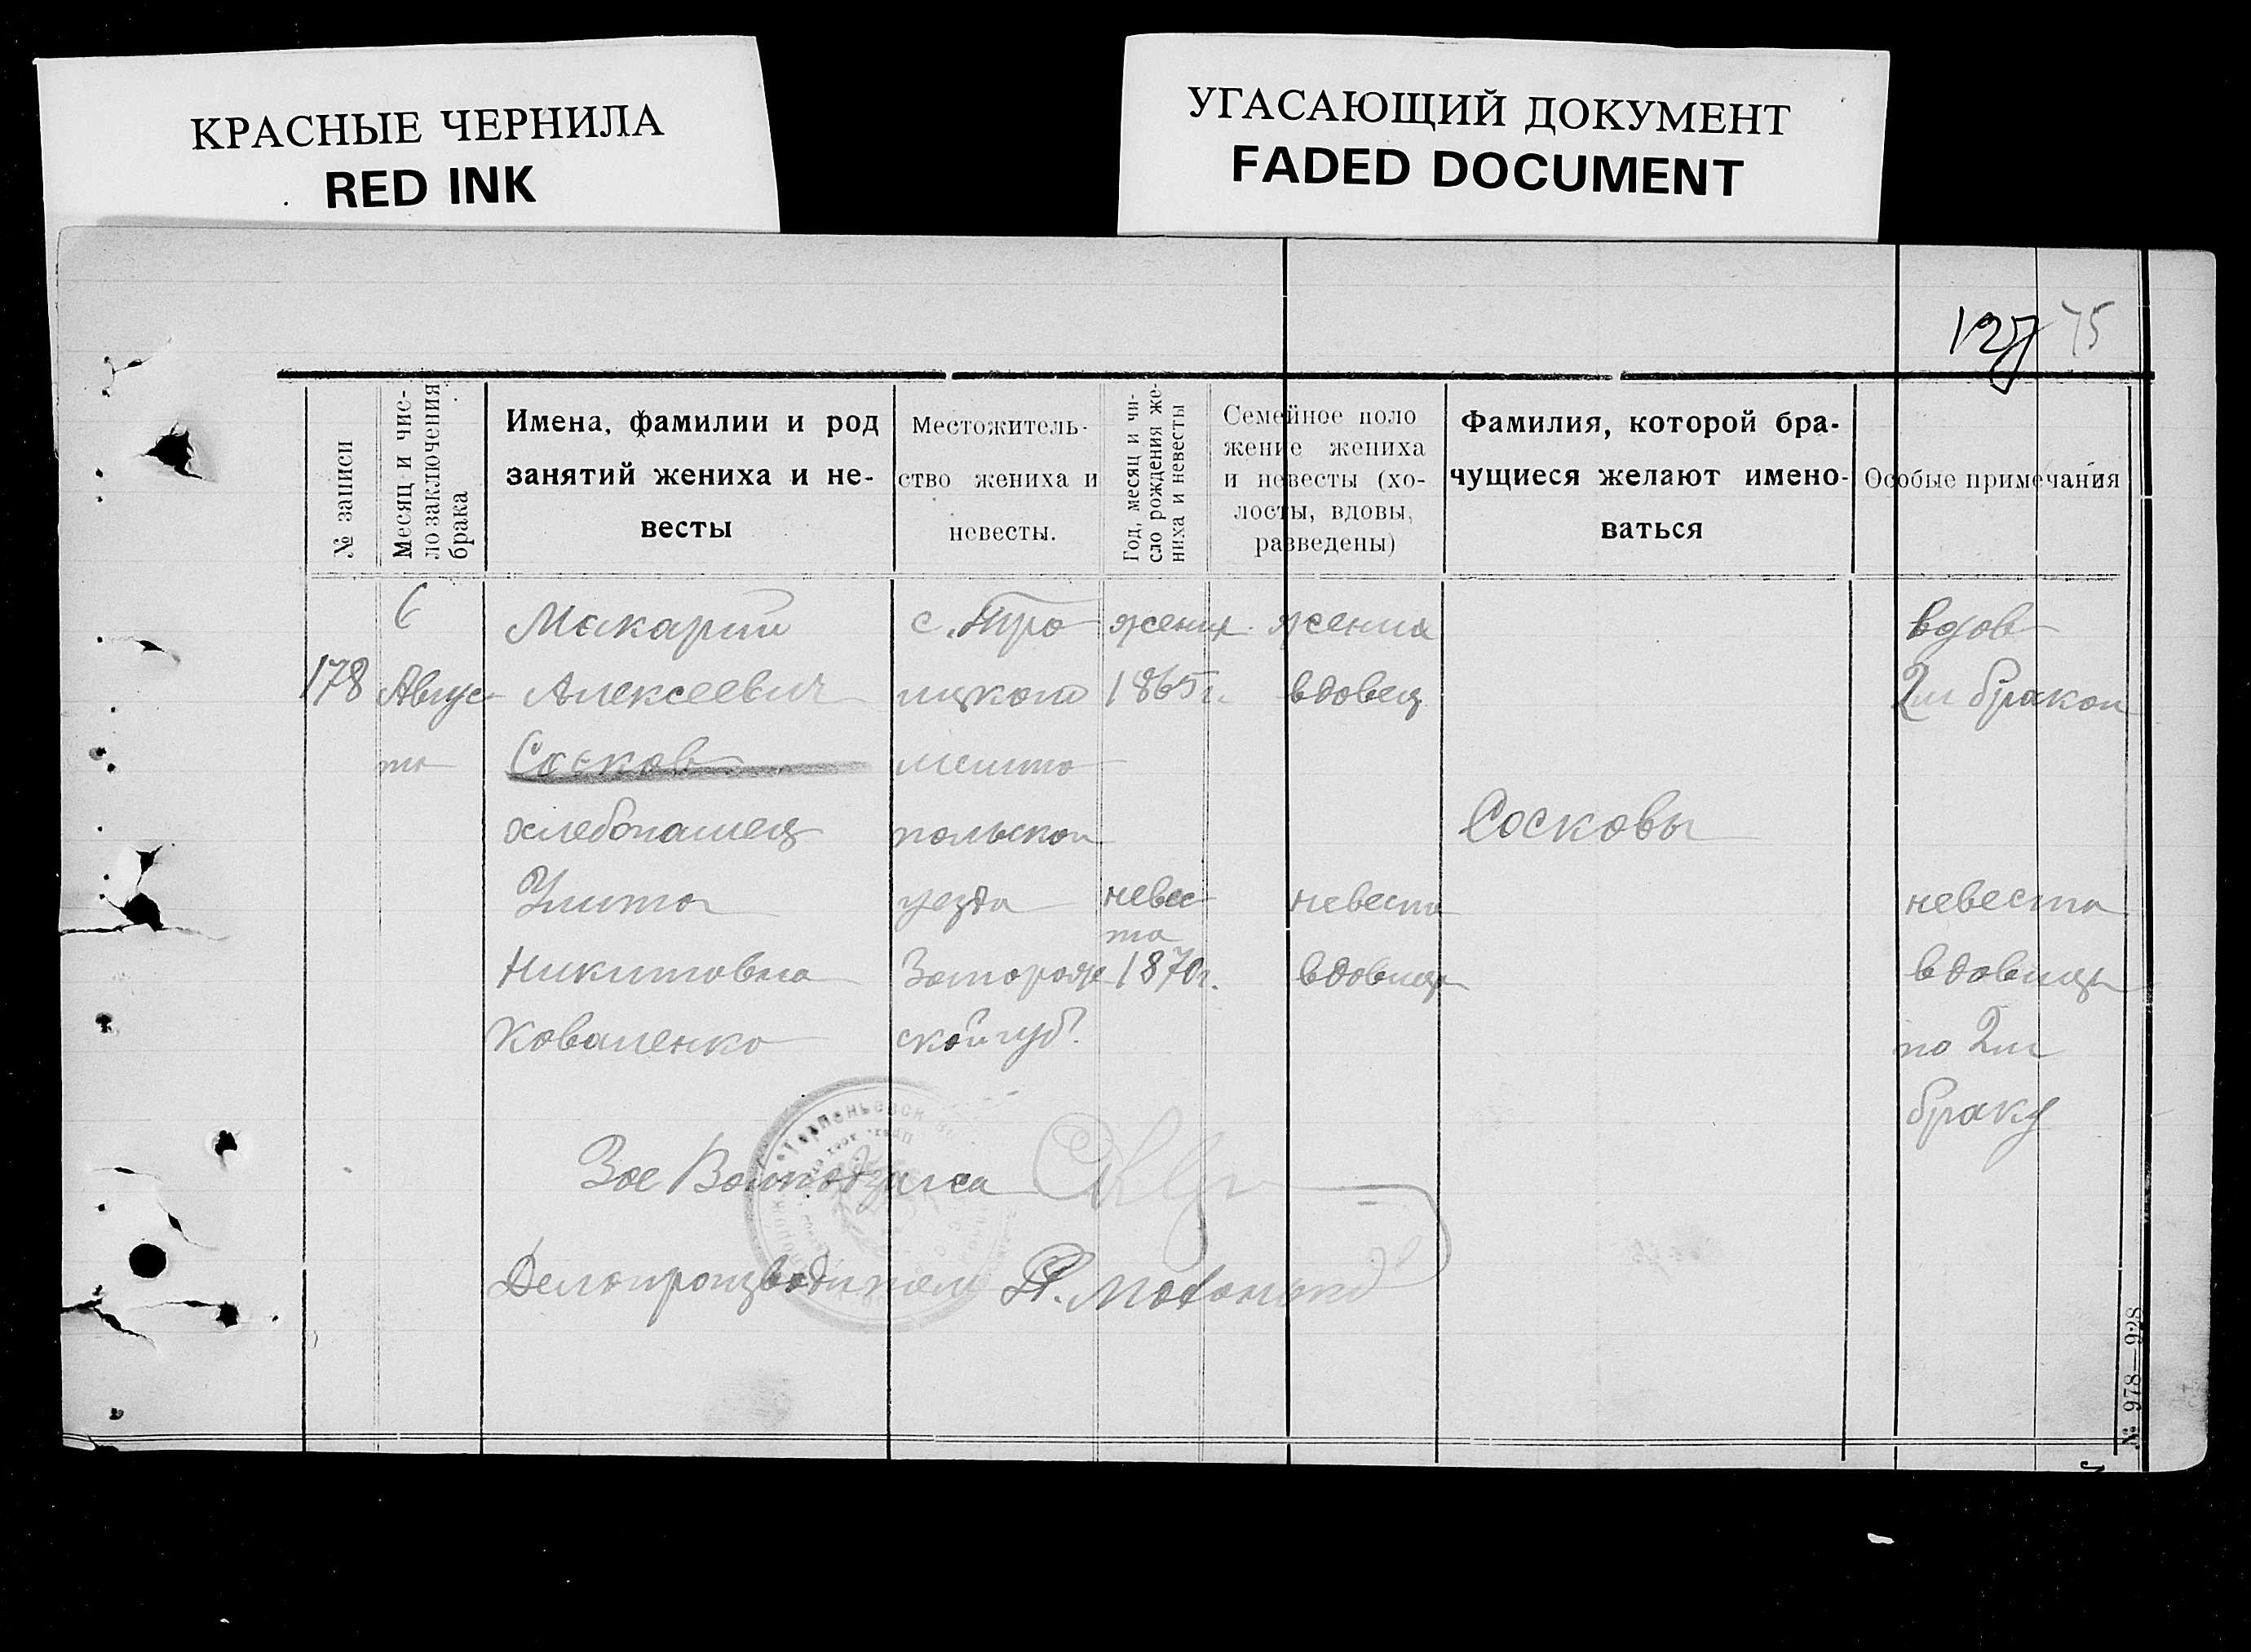 КРАСНЫЕ ЧЕРНИЛА
RED INK
УГАСАЮЩИЙ ДОКУМЕНТ
FADED DOCUMENT
127 75
№ записи
Месяц и чис-
ло заключения
брака
Имена, фамилии и род
занятий жениха и не-
весты
Местожитель-
ство жениха и
невесты.
Год, месяц и чи-
сло рождения же-
ниха и невесты
Семейное поло
жение жениха
и невесты (хо-
лосты, вдовы,
разведены)
Фамилия, которой бра-
чущиеся желают имено-
ваться
Особые примечания
178
6
Авгус
та
Макарий
Алексеевич
Сосков
хлебопашец
Улита
Никитовна
Коваленко
с. Тро
ицкого
Мелито
польскои
уезда
Запорож
ской губ.
жених
1865 г.
невес
та
1870 г.
жениха
вдовец
невеста
вдовица
Сосковы
вдов
2м браком
невеста
вдовица
по 2м
браку
Делопроизводитель
№ 978—928